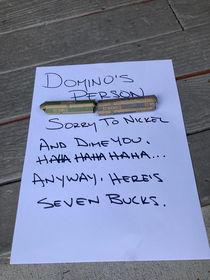 DOMINO'S
PERSON
SORRY TO NICKEL
AND DIME YOU.
HAHA HAHA HAHA...
ANYWAY, HERE'S
SEVEN BUCKS.